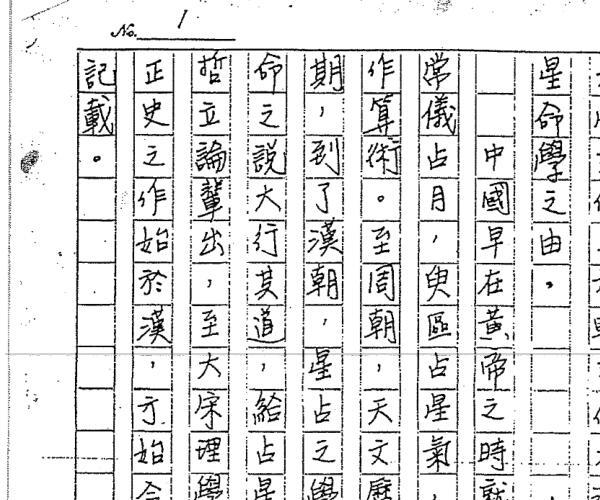 No. 1
星命學之由,
中國早在黃帝之時
常儀占月,臾區占星氣,
作算術。至周朝,天文歷
期,到了漢朝,星占之學
命之說大行其道,給占星
哲立論輩出,至大宋理學
正史之作始於漢,才始合
記載。